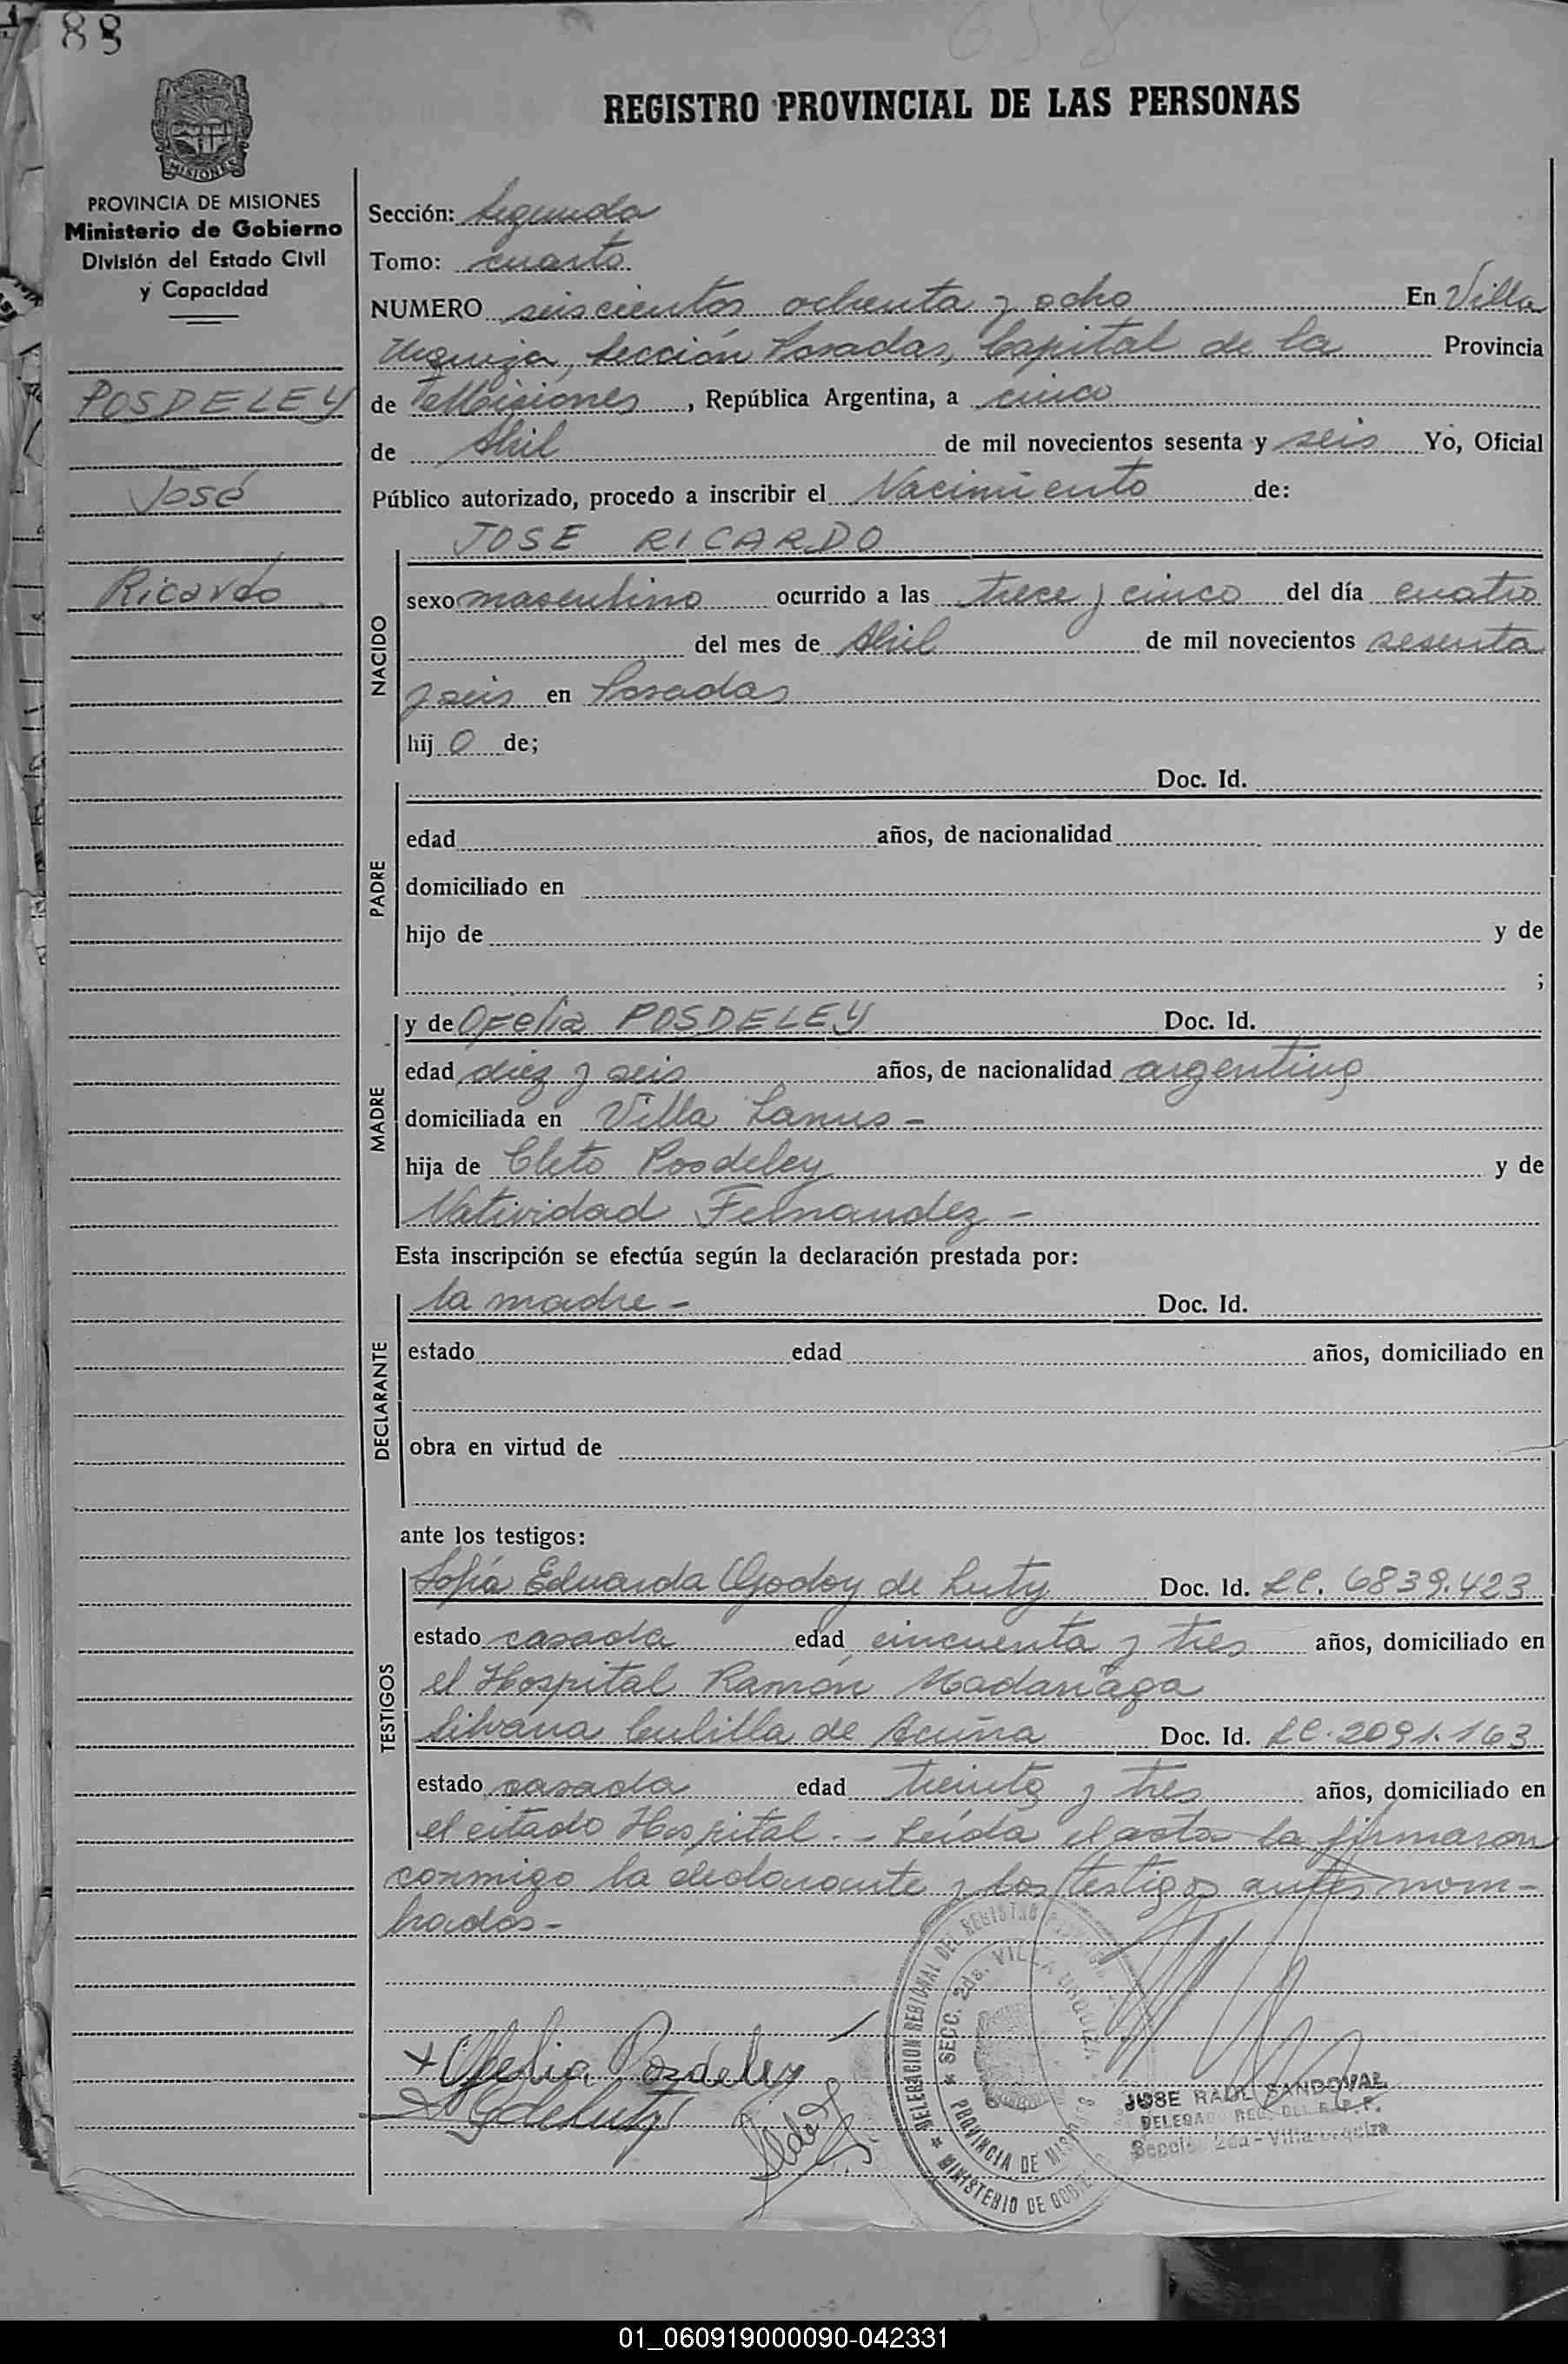 88
REGISTRO PROVINCIAL DE LAS PERSONAS
MISIONES
PROVINCIA DE MISIONES
Ministerio de Gobierno
División del Estado Civil
y Capacidad
POSDELEY
José
Ricardo
Sección: Segunda
Tomo: cuarto
NUMERO seiscientos ochenta y ocho En Villa
Urquiza, Sección Posadas, Capital de la Provincia
de Misiones, República Argentina, a cinco
de Abril de mil novecientos sesenta y seis Yo, Oficial
Público autorizado, procedo a inscribir el Nacimiento de:
JOSE RICARDO
NACIDO
sexo masculino ocurrido a las trece y cinco del día cuatro
del mes de Abril de mil novecientos sesenta
y seis en Posadas
hij o de;
PADRE
Doc. Id.
edad años, de nacionalidad
domiciliado en
hijo de y de
;
MADRE
y de Ofelia POSDELEY Doc. Id.
edad diez y seis años, de nacionalidad argentina
domiciliada en Villa Lanus -
hija de Cleto Posdeley y de
Natividad Fernandez -
Esta inscripción se efectúa según la declaración prestada por:
DECLARANTE
la madre - Doc. Id.
estado edad años, domiciliado en
obra en virtud de
ante los testigos:
TESTIGOS
Sofía Eduarda Godoy de Luty Doc. Id. LC. 6839.423
estado casada edad cincuenta y tres años, domiciliado en
el Hospital Ramón Madariaga
Silvana Cubilla de Acuña Doc. Id. LC. 2091.163
estado casada edad treinta y tres años, domiciliado en
el citado Hospital. - Leída el acta la firmaron
conmigo la declarante y los testigos antes nom-
brados -
+ Ofelia Posdeley
DELEGACION REGIONAL DEL REGISTRO
SECC. 2da. VILLA URQUIZA
PROVINCIA DE MISIONES
MINISTERIO DE GOBIERNO
JOSE RAUL SANDOVAL
DELEGADO REG. DEL R.P.P.
Sección 2da - Villa Urquiza
01_060919000090-042331